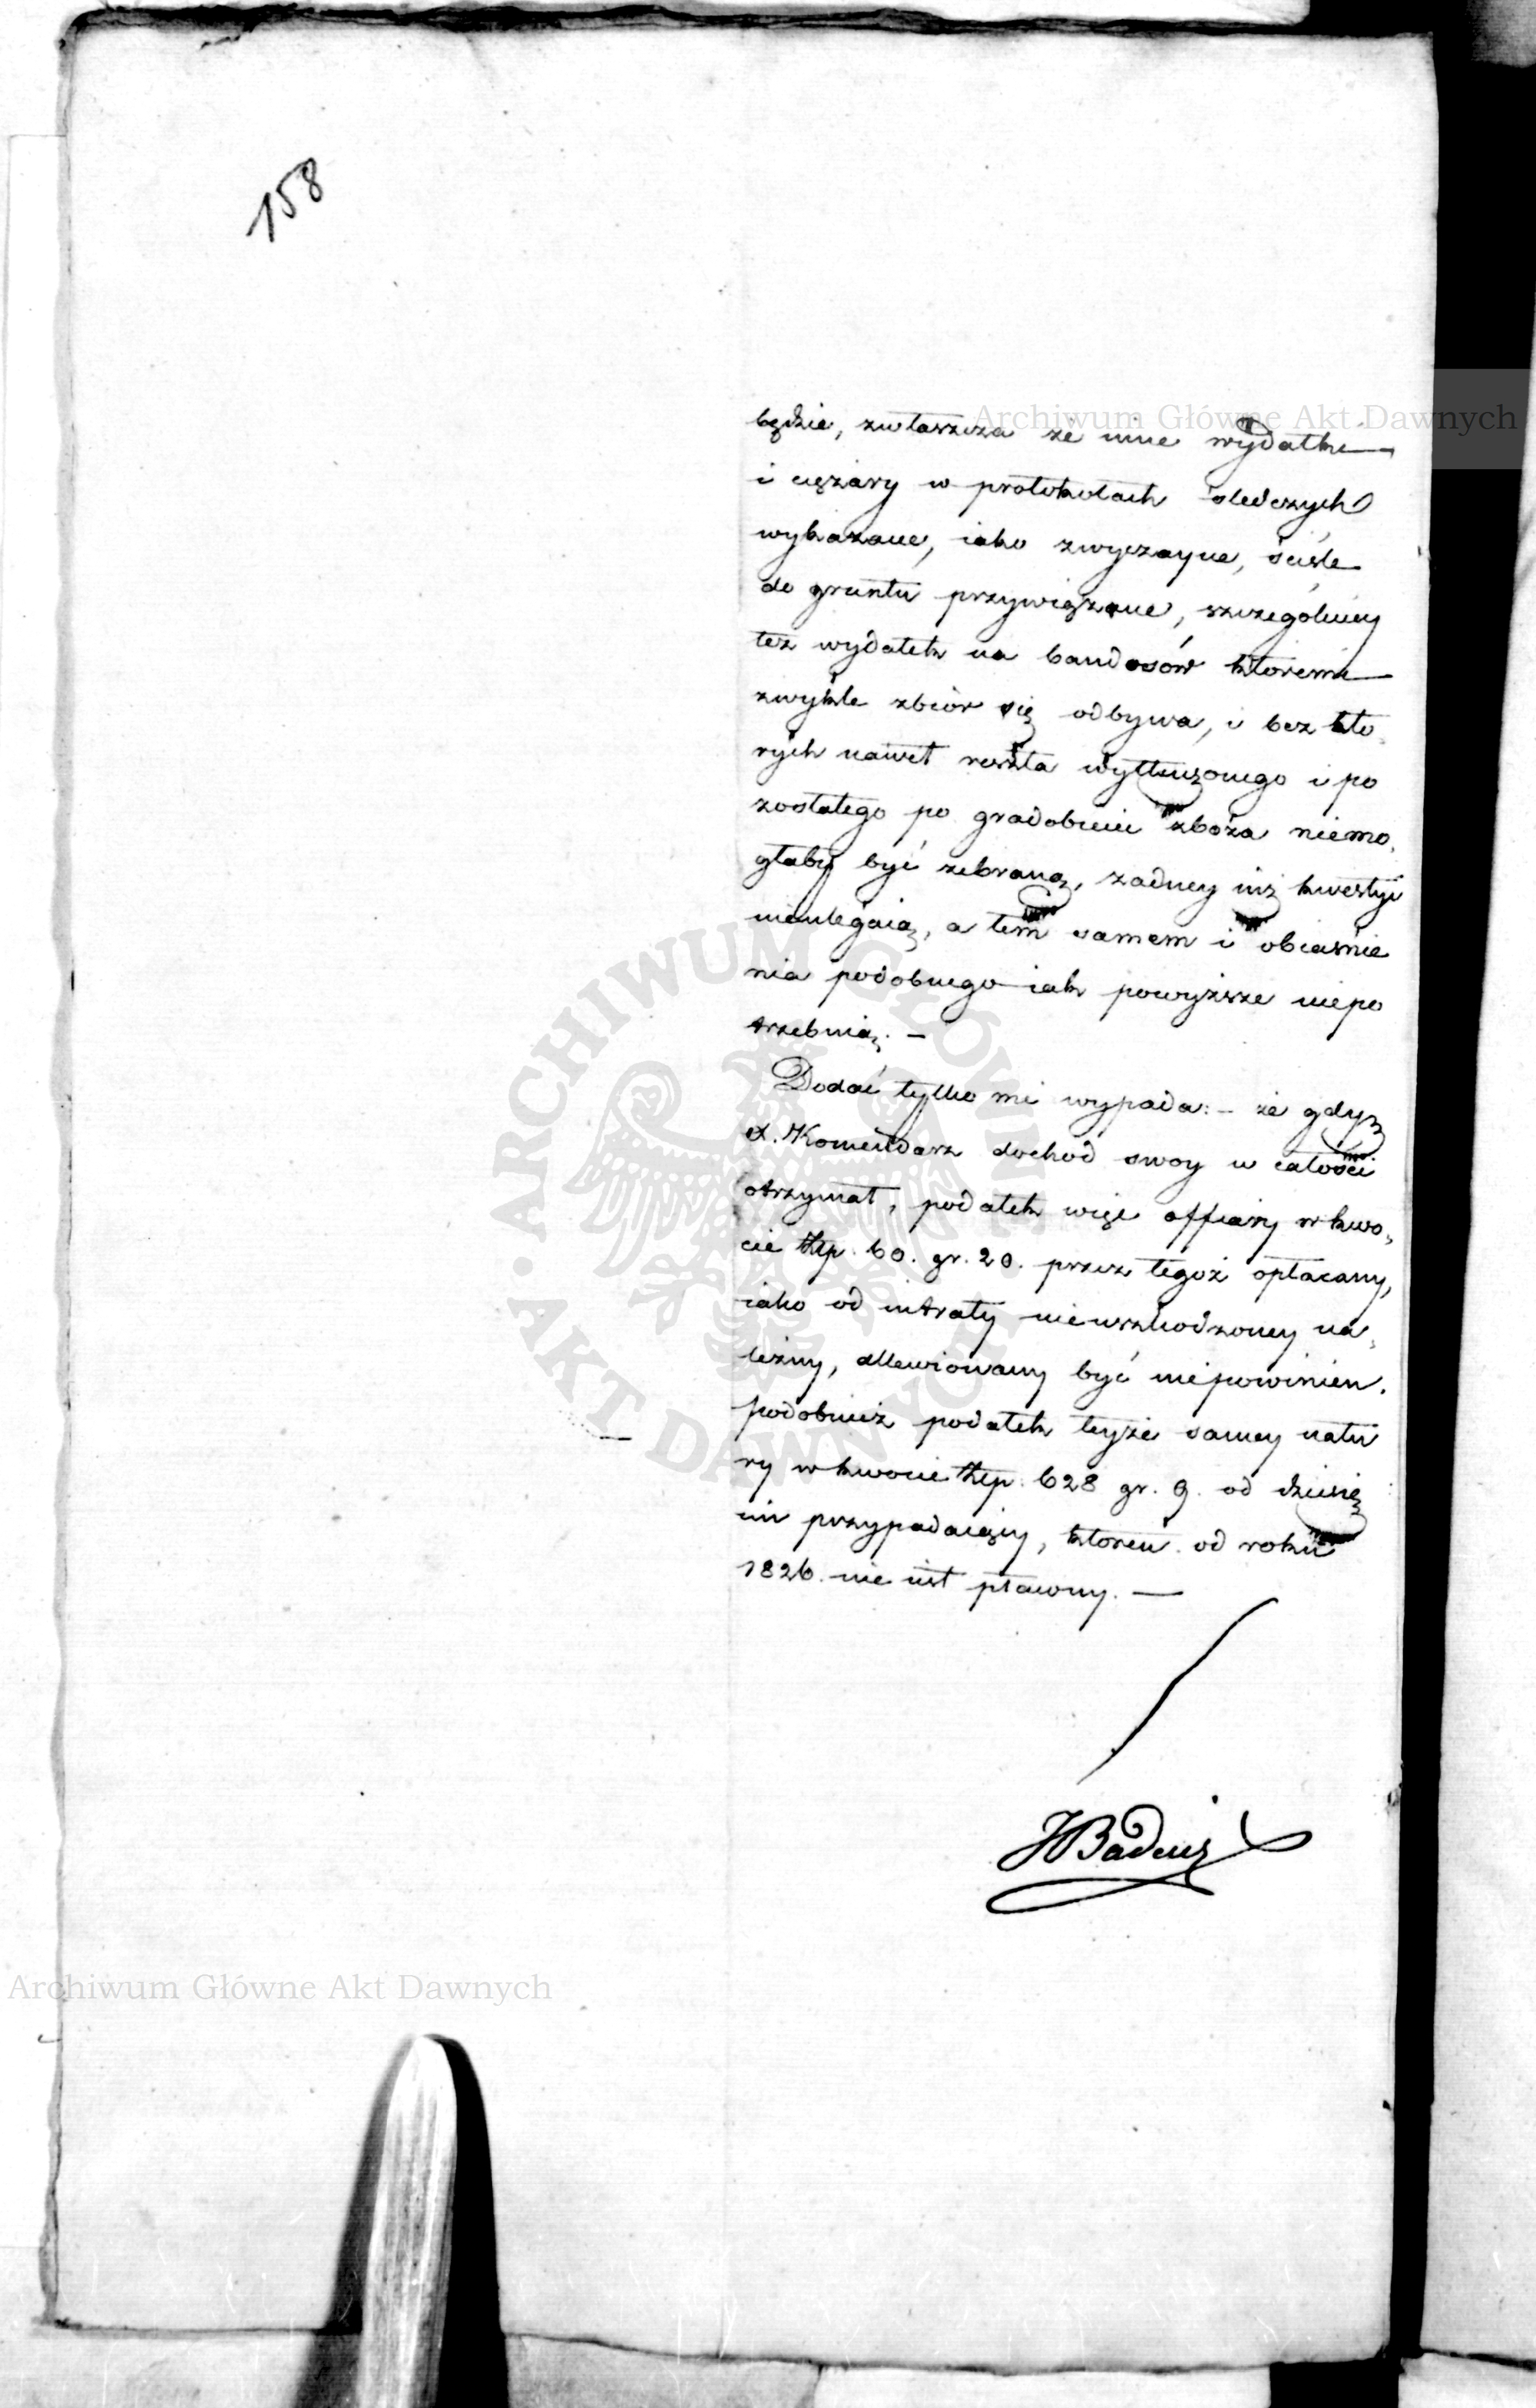 158
Archiwum Główne Akt Dawnych
będzie, zwłaszcza że inne wydatki
i ciężary w protokołach śledczych
wykazane, iako zwyczayne, ściśle
do gruntu przywiązane, szczególniey
też wydatek na bandosów któremi
zwykle zbiór się odbywa, i bez któ
rych nawet reszta wytłuczonego i po
zostałego po gradobiciu zboża niemo,
głaby być zebraną, żadney iuż kwestyi
nieulegaią, a tem samem i obiaśnie
nia podobnego iak powyższe niepo
trzebuią. —
Dodać tylko mi wypada: – że gdy
X. Komendarz dochód swoy w całości
otrzymał, podatek więc offiary w kwo,
cie złp. 60. gr. 20. przez tegoż opłacany,
iako od intraty nieuszkodzoney na,
leżny, allewiowany być niepowinien.
podobnież podatek teyże samey natu
ry w kwocie złp. 628 gr. 9. od dziesię
cin przypadaiący, któren od roku
1826. nie iest płacony. —
HBadeni
ARCHIWUM GŁÓWNE
AKT DAWNYCH
Archiwum Główne Akt Dawnych